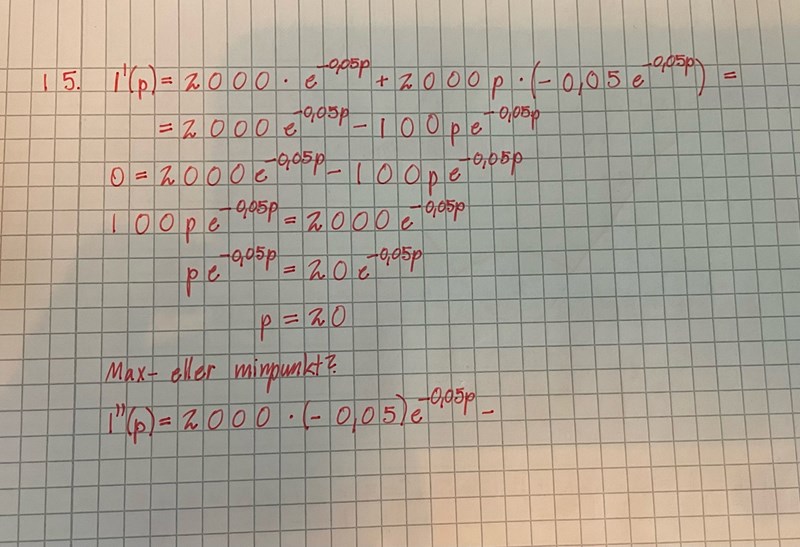 15. I'(p) = 2000 · e^-0,05p + 2000p · (-0,05e^-0,05p) =
= 2000e^-0,05p - 100pe^-0,05p
0 = 2000e^-0,05p - 100pe^-0,05p
100pe^-0,05p = 2000e^-0,05p
pe^-0,05p = 20e^-0,05p
p = 20
Max- eller minpunkt?
I''(p) = 2000 · (-0,05)e^-0,05p -